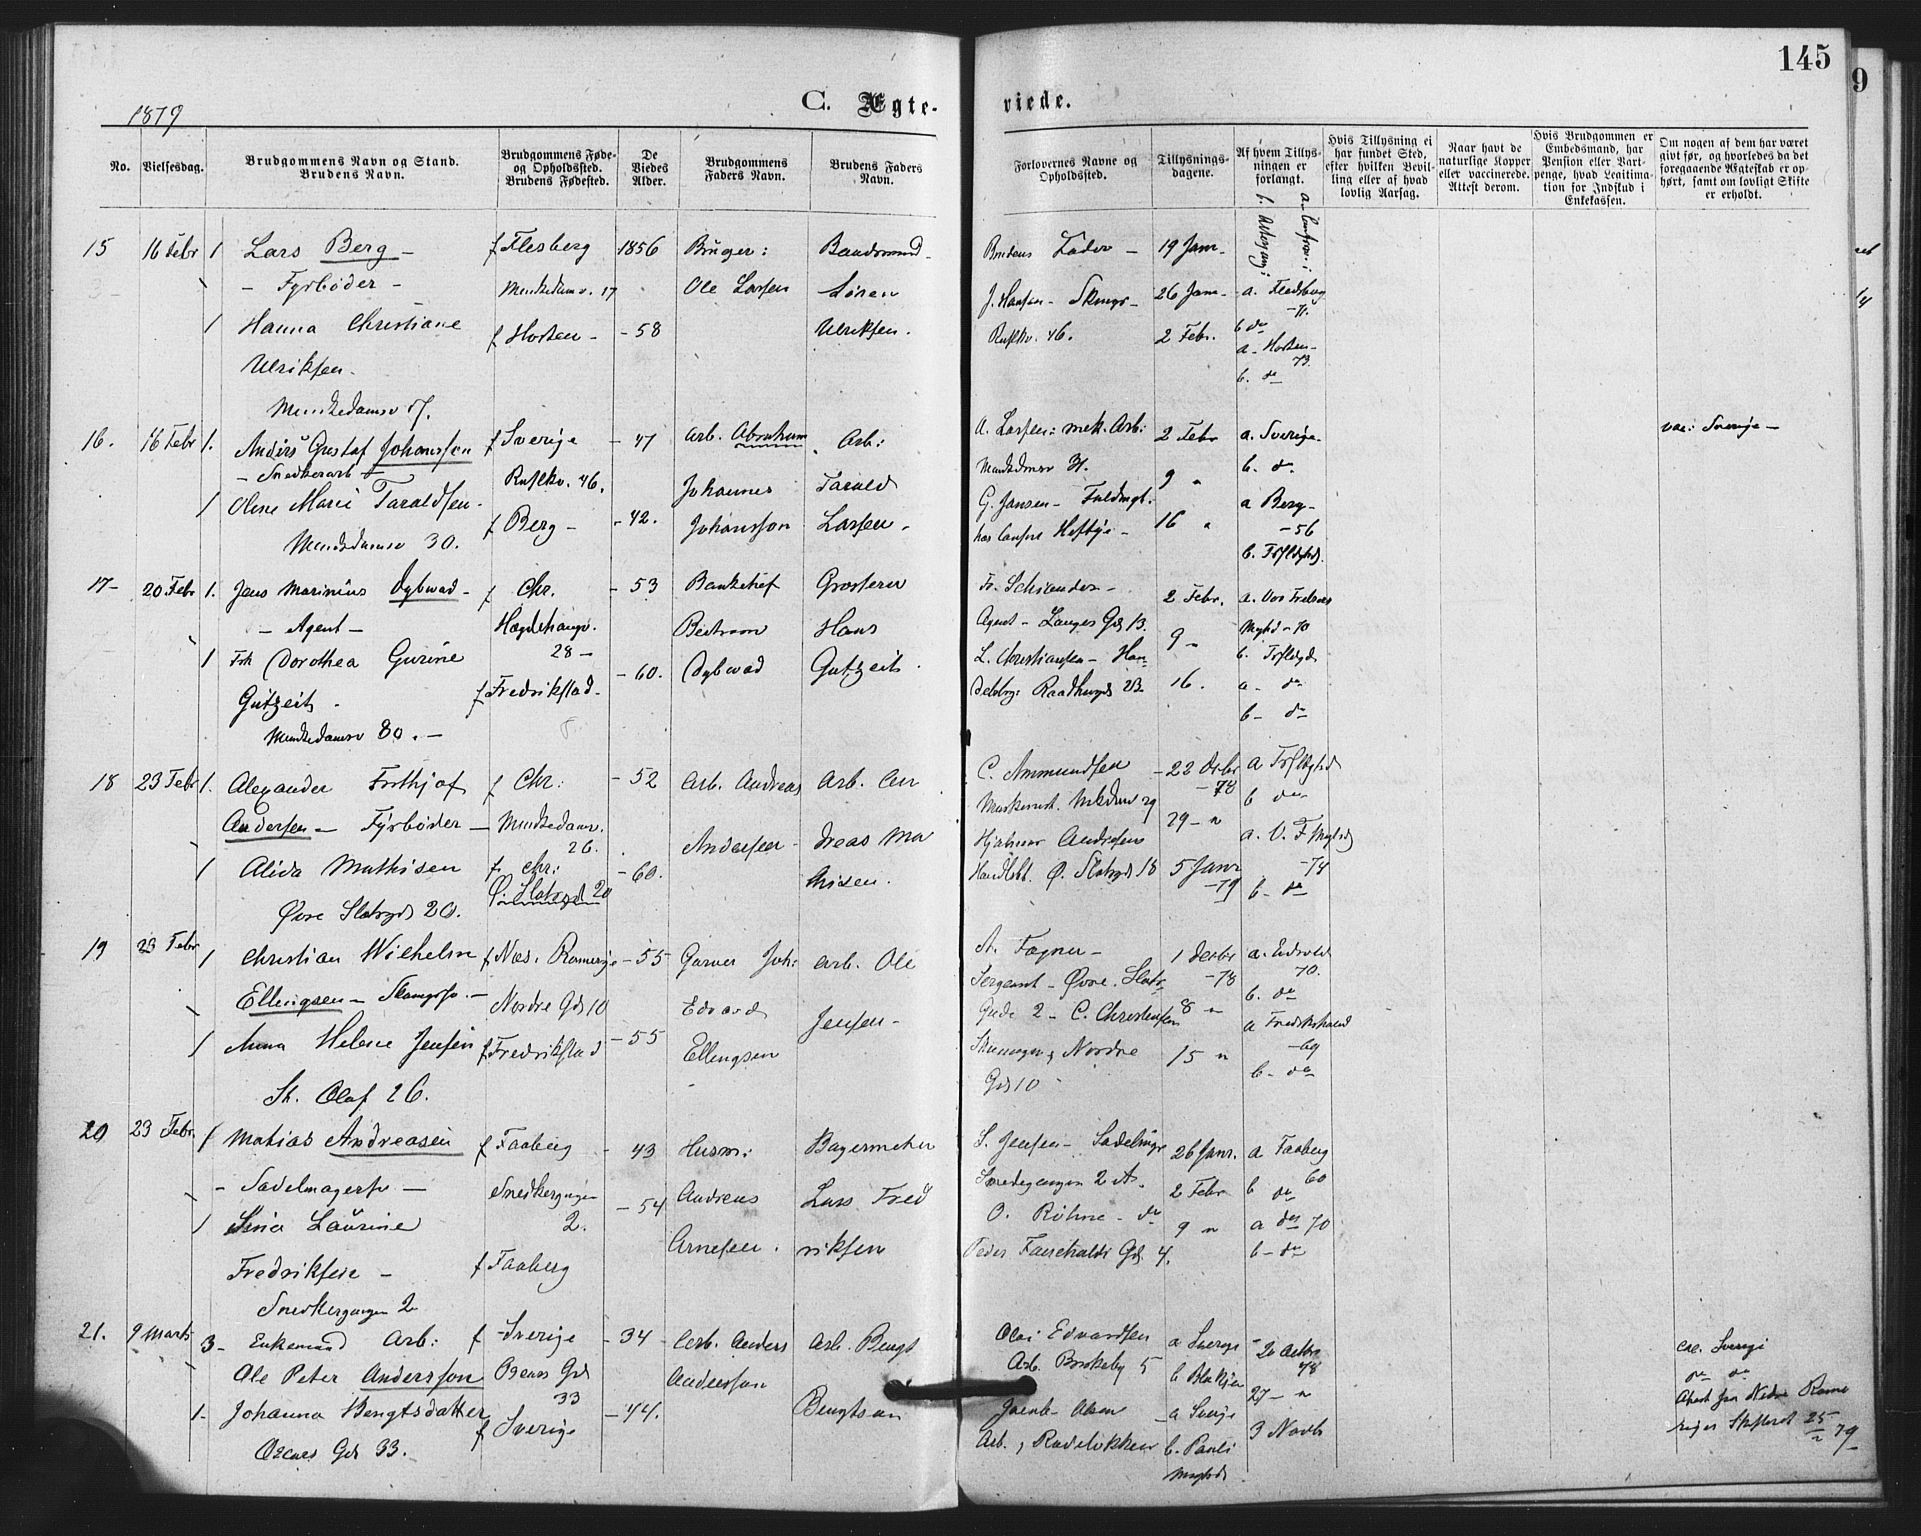 145
9
1879
C. Ægte-
viede.
No.
Vielsesdag.
Brudgommens Navn og Stand.
Brudens Navn.
Brudgommens Føde-
og Opholdssted.
Brudens Fødested.
De
Viedes
Alder.
Brudgommens
Faders Navn.
Brudens Faders
Navn.
Forlovernes Navne og
Opholdssted.
Tillysnings-
dagene.
Af hvem Tillys-
ningen er
forlangt.
Hvis Tillysning ei
har fundet Sted,
efter hvilken Bevil-
ling eller af hvad
lovlig Aarsag.
Naar havt de
naturlige Kopper
eller vaccinerede.
Attest derom.
Hvis Brudgommen er
Embedsmand, har
Pension eller Vart-
penge, hvad Legitima-
tion for Indskud i
Enkekassen.
Om nogen af dem har været
givt før, og hvorledes da det
foregaaende Ægteskab er op-
hørt, samt om lovligt Skifte
er erholdt.
15
16 Febr
1
Lars Berg -
- Fyrbøder -
1
Hanna Christiane
Ulriksen.
Munkedamsv 17.
f Flesberg
Munkedamsv. 17
f Horten -
1856
- 58
Bruger:
Ole Larsen
Baadsmand
Søren
Ulriksen.
Brudens Fader -
J. Hansen - Skomgr -
Rusløkv. 46.
19 Janr
26 Janr -
2 Febr.
a. Flesberg
- 71.
b. do
a. Horten -
73.
b. do
16.
16 Febr
1.
Anders Gustaf Johansson
- Snedkerarb -
1
Oline Marie Taraldsen
Munkedamsv 30.
f Sverige
Rusløkv. 46.
f Berg -
- 47
- 42.
Arb. Abraham
Johannes
Johansson
Arb:
Tarald
Larsen.
A. Larsen: mek. Arb:
Munkedamsv 31.
G. Jansen - Fuldmgt.
hos Consul Heftye -
2 Febr
9 "
16 "
a. Sverige
b. do
a Berg -
- 56
b.
vac: Sverige -
17 -
20 Febr
1.
Jens Marinius Dybwad -
- Agent -
1
Frk Dorothea Gurine
Gutzeit
Munkedamsv 80. -
f Chr.
Hægdehaugv.
28 -
f Fredrikstad -
- 53
- 60.
Bankchef
Bertram
Dybwad
Grosserer
Hans
Gutzeit
Fr. Schiander -
Agent - Langes Gd 13.
L. Christiansen - Han-
delsbg: Raadhusgd 23.
2 Febr.
9 -
16.
a. Vor Frelsers
Mghd - 70
b.
a - do
b - do
18
23 Febr
1.
Alexander Frithjof
Andersen - Fyrbøder -
1
Alida Mathisen
Øvre Slotsgd 20.
f Chr:
Munkedamv.
26.
f Chr:
Ø. Slotsgd 20
- 52
- 60.
Arb. Andreas
Andersen -
Arb. An
dreas Ma
thisen.
C. Ammundsen
Hjalmar Andersen
Ø. Slotsgd 18
- 22 Decbr
- 78
29 - "
5 Janr
- 79
b do
a. V. F. Mghd
- 74
b - do
19
23 Febr
1
Christian Wilhelm
Ellingsen - Skomgrsv. -
1
Anna Helene Jensen
St. Olaf 26.
f Næs. Romerige
Nordre Gd 10
f Fredrikstad
- 55
- 55
Garver Joh:
Edvard
Ellingsen
Arb. Ole
Jensen -
A. Fogner -
Sergeant - Øvre. Slots
Gade 2 - C. Christensen
Skomager, Nordre
Gd 10
1 Decbr
- 78
8 "
15 "
a. Eidsvold
70.
b. do
a Fredrikstad
- 69
b - do
20
23 Febr.
1
Matias Andreasen
- Sadelmagersv -
1
Sina Laurine
Fredriksen -
Snedkergangen 2
f Faaberg
Snedkergangen
2.
f Faaberg
- 43
- 54
Husm:
Andreas
Arnesen.
Bagermester
Lars Fred
riksen
S. Jensen - Sadelmgr
Snedkergangen 2 A.
O. Röhne - do
Peder Gd 4.
26 Janr.
2 Febr
9 "
a Faaberg
60
b do
a do 70
b - do
21.
9 Marts
3 -
Enkemand Arb:
Ole Peter Andersson
1 -
Johanna Bengtsdatter
Oscars Gd 33.
f Sverige
Oscars Gd
33
f Sverige
- 34
- 44.
Arb. Anders
Andersson
Arb. Bengt
Bengtson
Olai Edvardsen
Arb. Briskeby 5
Jacob Olsen
Arb., Rodeløkken
a Sverige
b
- a Sverige
b. Pauli
Mghd
- 20 Octbr
78
27 - "
3 Novb
vac. Sverige
do do
Attest fra Nedre Rome
riges Skifteret 25/2 79